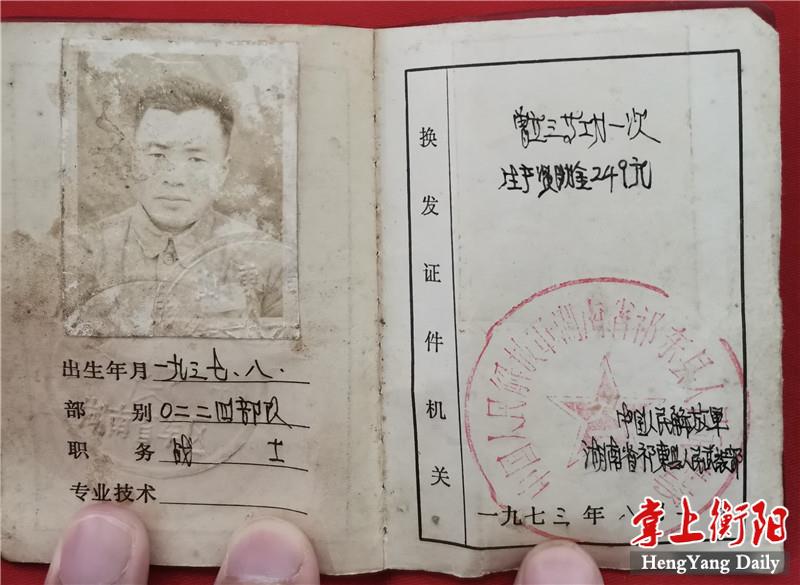 出生年月 一九三七、八.
部别 0二二四部队
职务 战士
专业技术
换发证件机关
曾立三等功一次
生产资助金249元
中国人民解放军湖南省祁东县人
中国人民解放军
湖南省祁东县人民武装部
一九七三年八
掌上衡阳
HengYang Daily